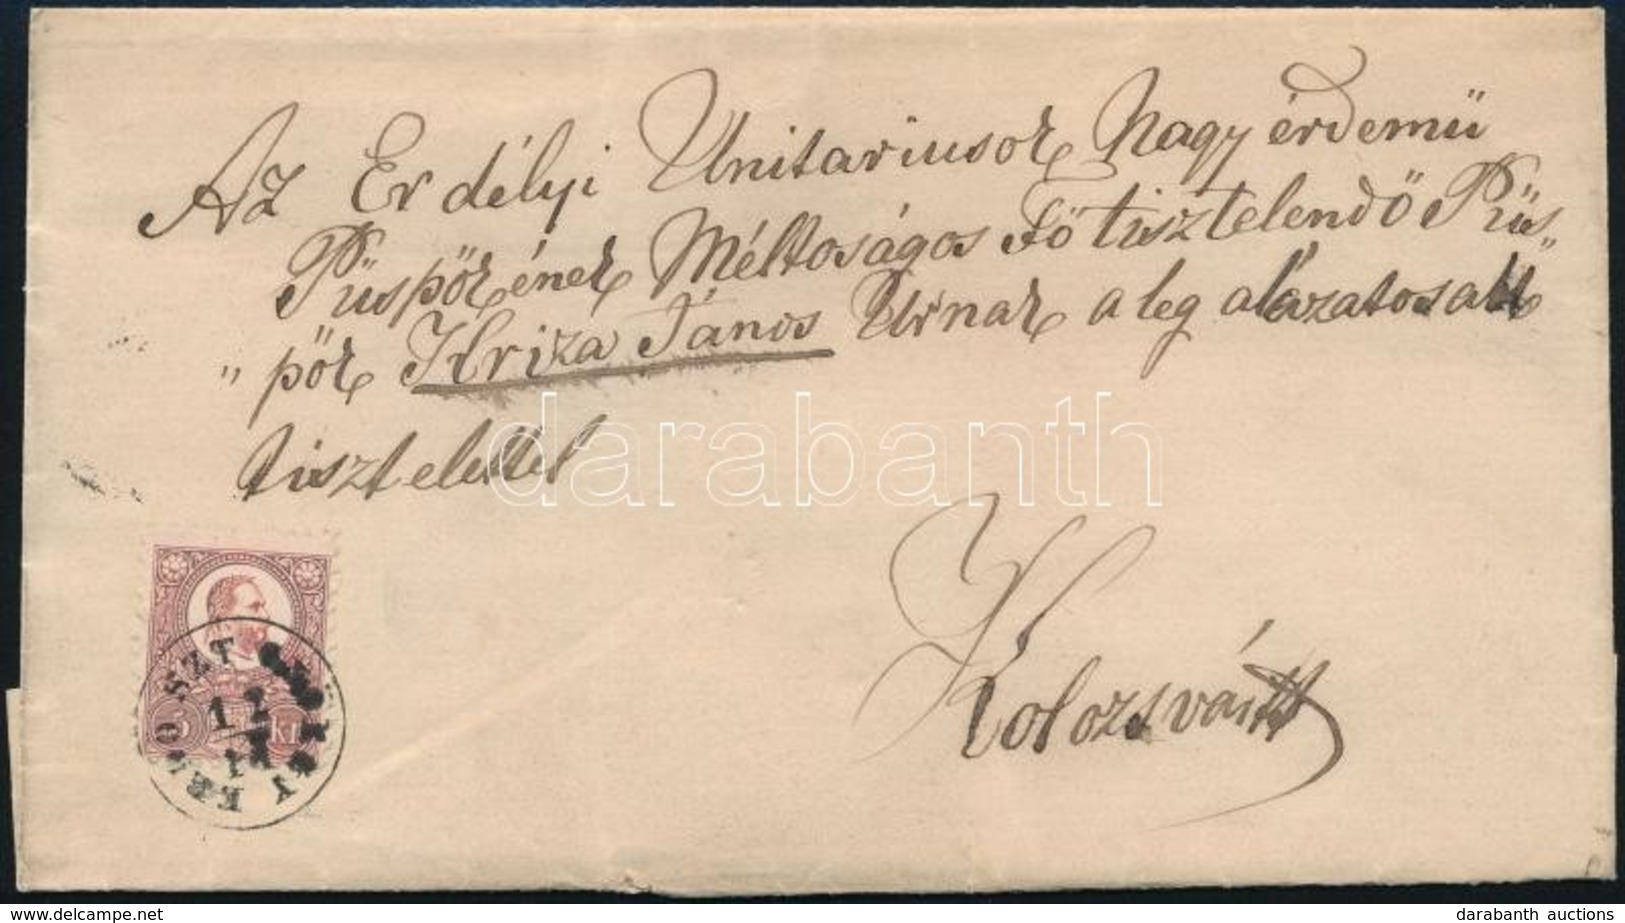 Az Erdélyi Unitariusok Nagy érdemü
Püspökének Méltoságos Fő tisztelendő Püs„
„pök Kriza János Urnak a leg alázatosabb
tisztelettel
darabanth
Kolozsvártt
SZT
12
5 Kr
darabanth auctions